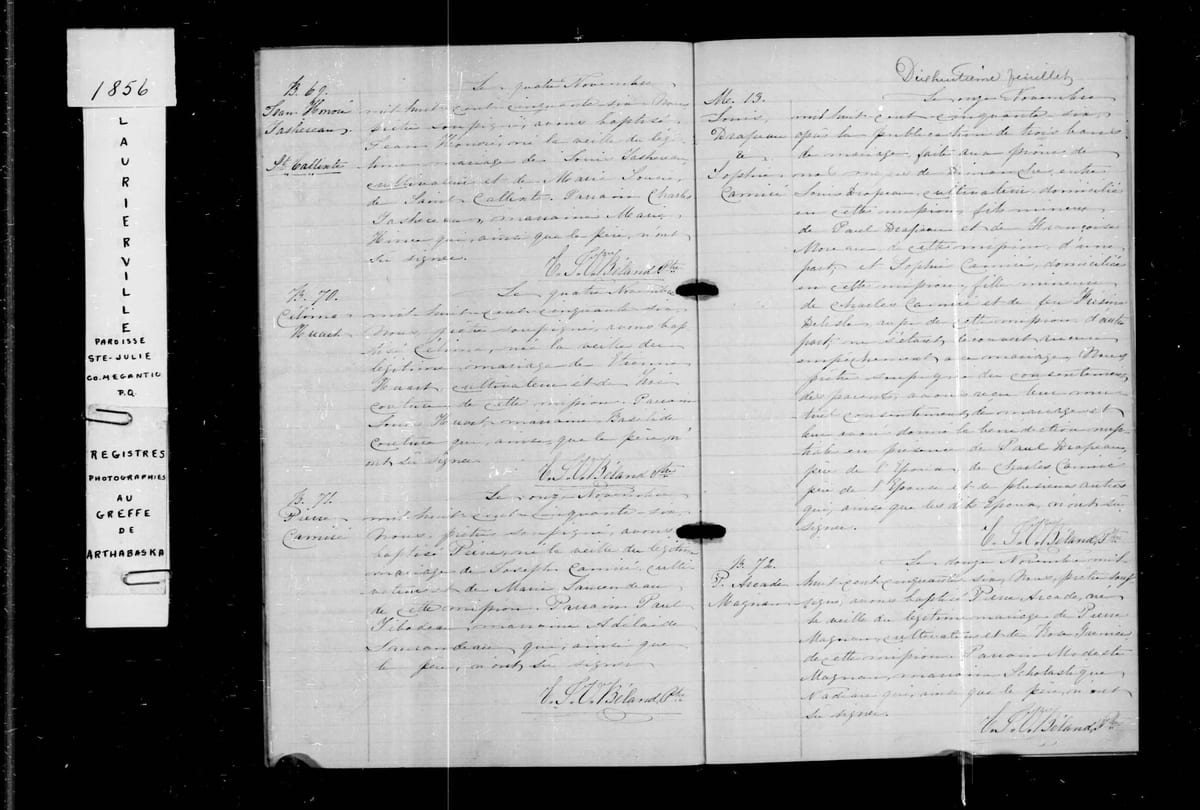 1856
LAURIERVILLE
PAROISSE
STE-JULIE
CO. MEGANTIC
P.Q.
REGISTRES
PHOTOGRAPHIES
AU
GREFFE
DE
ARTHABASKA
B. 69.
Jean Honoré
Tashereau
St Callixte
Le quatre Novembre
mil huit cent cinquante six, Nous
prêtre soussigné, avons baptisé
Jean Honoré, né la veille du légi-
time mariage de Louis Tashereau,
cultivateur et de Marie
de Saint Callixte. Parrain Charles
Tashereau, marraine Marie
qui, ainsi que le père, n'ont
su signer.
Béland, Ptre
B. 70.
Célima
Huart
Le quatre Novembre
mil huit cent cinquante six,
Nous, prêtre soussigné, avons bap-
tisé Célima, né la veille du
légitime mariage de Etienne
Huart, cultivateur et de
couture de cette mission. Parrain
Louis Huart, marraine Basilide
couture qui, ainsi que le père, n'
ont su signer.
Béland, Ptre
B. 71.
Pierre
Camiré
Le onze Novembre
mil huit cent cinquante six,
Nous, prêtre soussigné, avons
baptisé Pierre, né la veille du légitime
mariage de Joseph Camiré, culti-
vateur et de Marie
de cette mission. Parrain Paul
Tibodeau, marraine Adélaide
qui, ainsi que
le père, n'ont su signer
Béland, Ptre
Dixhuitième feuillet
Me. 13.
Louis
Drapeau
&
Sophie
Camiré
Le onze Novembre
mil huit cent cinquante six,
après la publication de trois bans
de mariage faite aux prônes de
nos messes de Dimanche, entre
Louis Drapeau cultivateur domicilié
en cette mission, fils mineur
de Paul Drapeau et de Françoise
Moreau de cette mission, d'une
part, et Sophie Camiré, domiciliée
en cette mission, fille mineure
de Charles Camiré et de feu
Delisle, aussi de cette mission d'autre
part, ne s'étant découvert aucun
empêchement au mariage, Nous
prêtre soussigné du consentement
des parents, avons reçu leur mu-
tuel consentement de mariage et
leur avons donné la bénédiction nup-
tiale en présence de Paul Drapeau,
père de l'Epoux, de Charles Camiré
père de l'Epouse et de plusieurs autres
qui, ainsi que les dits Epoux, n'ont su
signer.
Béland, Ptre
B. 72.
P. Arcade
Magnan
Le douze Novembre mil
huit cent cinquante six, Nous, prêtre sous-
signé, avons baptisé Pierre Arcade, né
la veille du légitime mariage de Pierre
Magnan, cultivateur et de
de cette mission. Parrain Modeste
Magnan, marraine Scholastique
Nadeau qui, ainsi que le père, n'ont
su signer.
Béland, Ptre